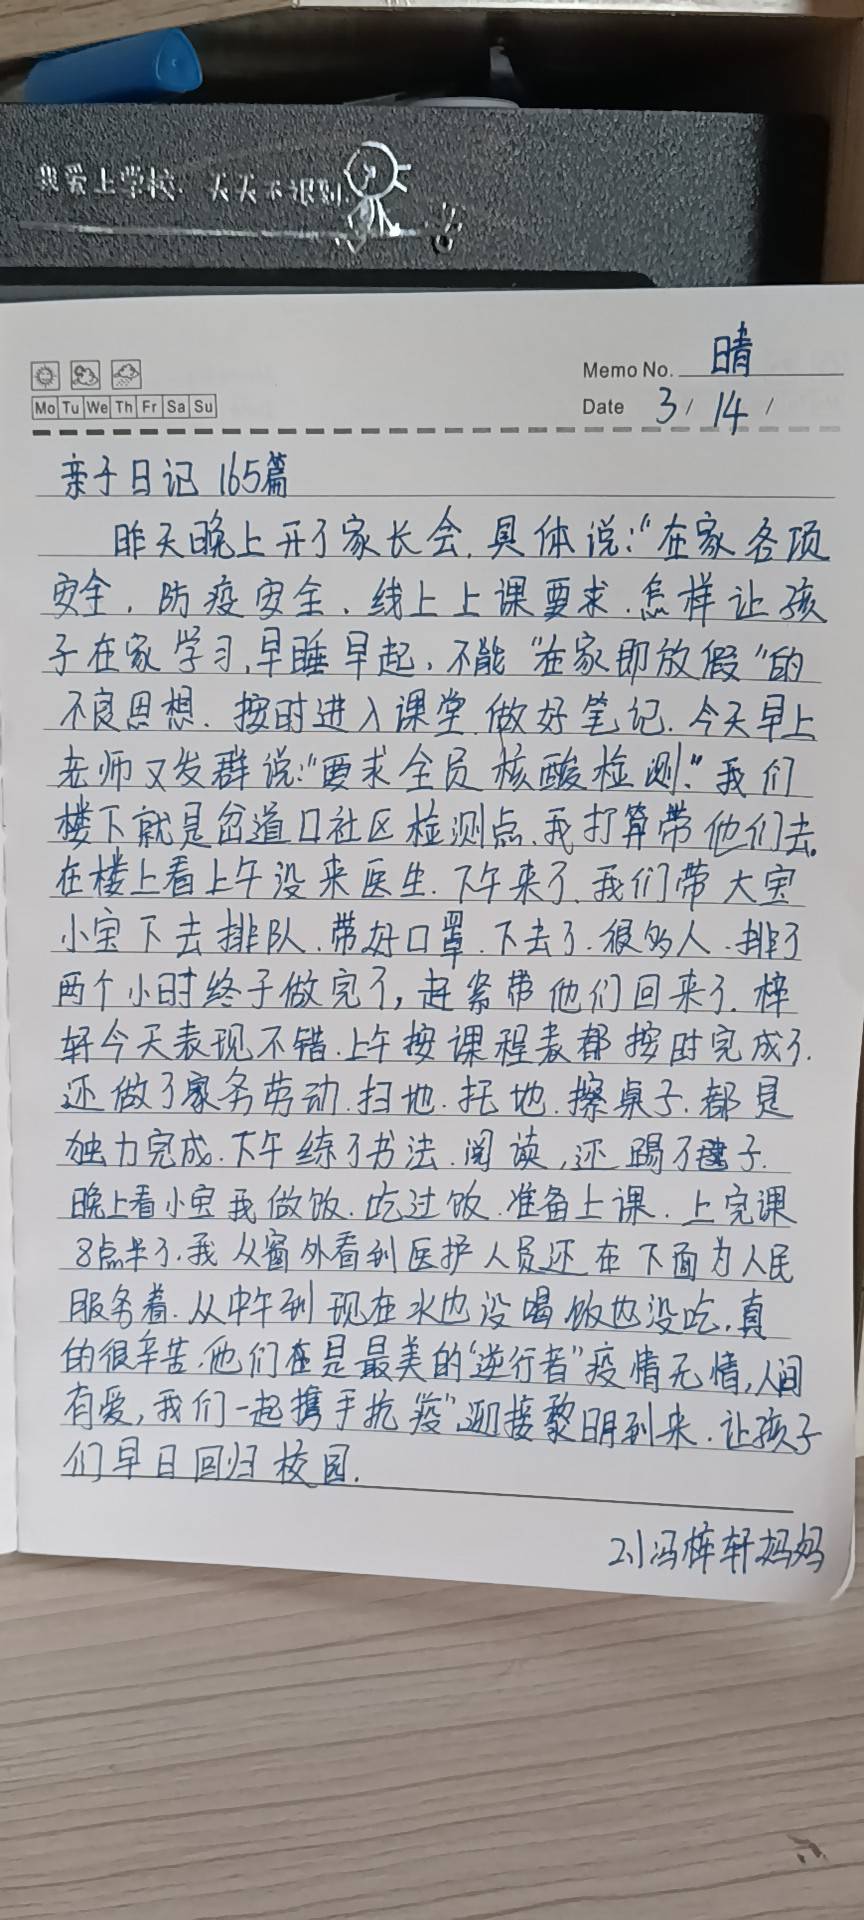 我爱上学校 天天不迟到
晴
Memo No.
Mo Tu We Th Fr Sa Su
Date 3 / 14 /
亲子日记 165篇
昨天晚上开了家长会,具体说:“在家各项
安全,防疫安全、线上上课要求.怎样让孩
子在家学习,早睡早起,不能“在家即放假”的
不良思想.按时进入课堂.做好笔记.今天早上
老师又发群说:“要求全员核酸检测."我们
楼下就是岔道口社区检测点,我打算带他们去。
在楼上看上午没来医生.下午来了.我们带大宝
小宝下去排队.带好口罩.下去了.很多人.排了
两个小时终于做完了,赶紧带他们回来了.梓
轩今天表现不错.上午按课程表都按时完成了.
还做了家务劳动.扫地.托地.擦桌子.都是
独力完成.下午练了书法.阅读,还踢了毽子.
晚上看小宝我做饭.吃过饭.准备上课.上完课
8点半了.我从窗外看到医护人员还在下面为人民
服务着.从中午到现在水也没喝饭也没吃.真
的很辛苦.他们在是最美的“逆行者”疫情无情,人间
有爱,我们一起携手抗疫”迎接黎明到来.让孩子
们早日回归校园.
2.1冯梓轩妈妈